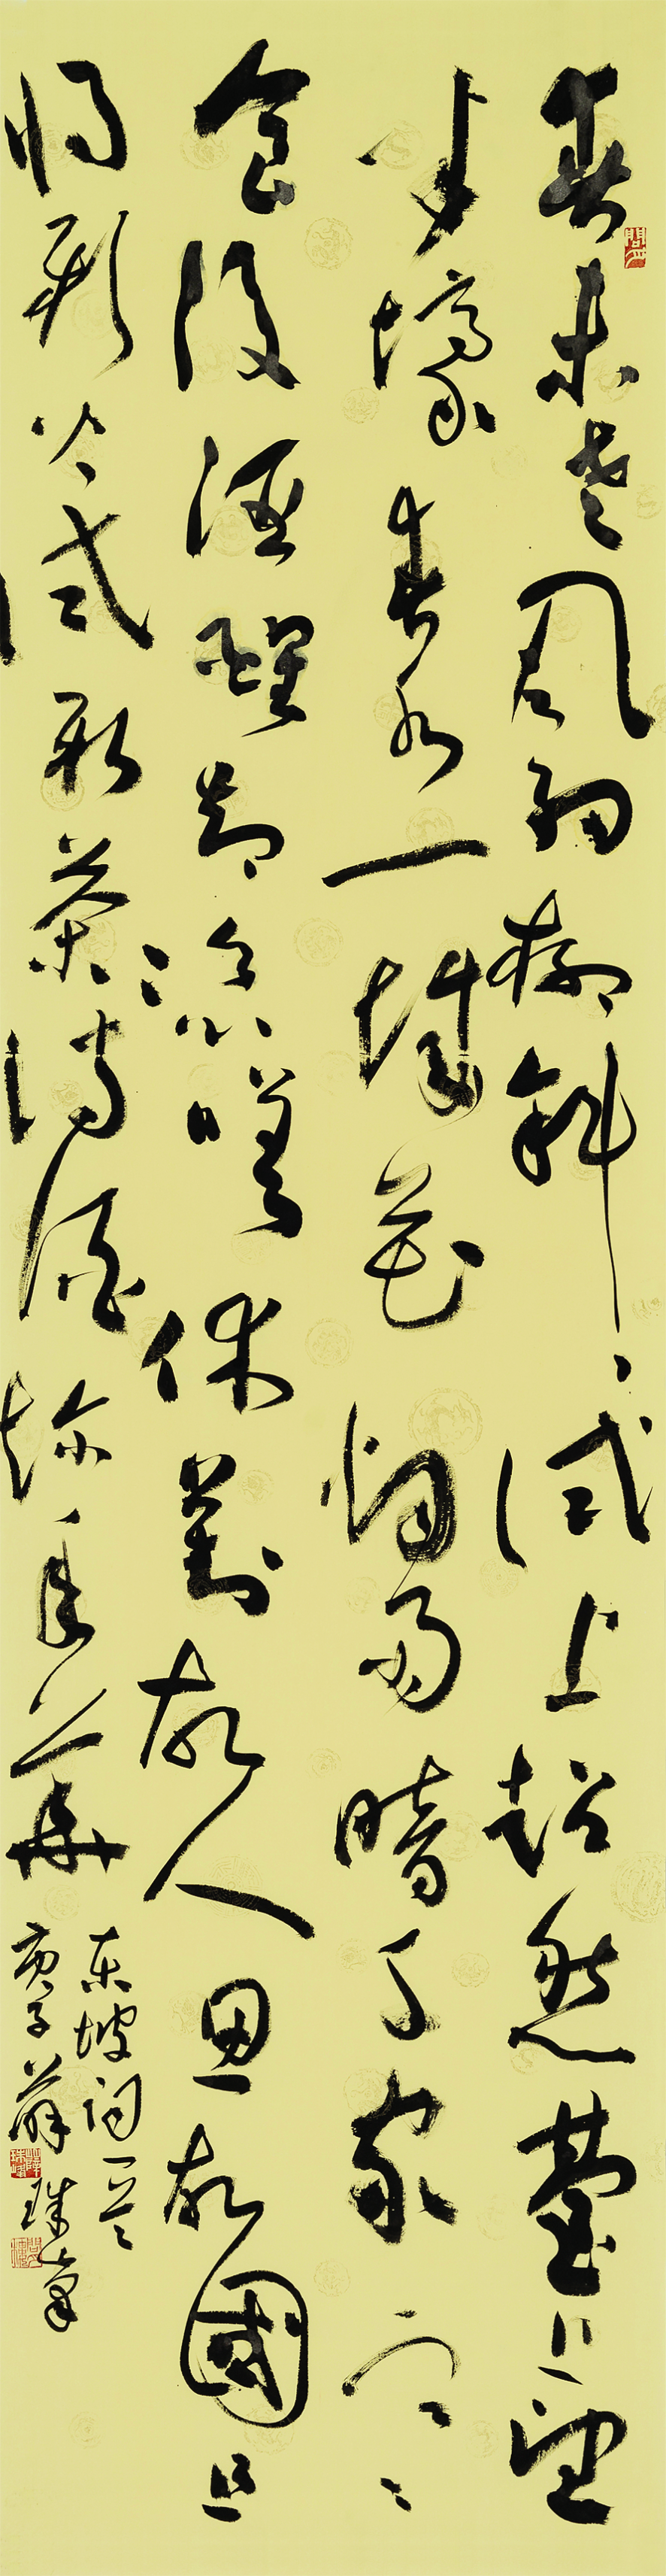 春未老風細柳斜斜試上超然臺上望
半壕春水一城花烟雨暗千家寒
食後酒醒却咨嗟休對故人思故國且
將新火試新茶詩酒趁年華
東坡詞一首
庚子薛珠